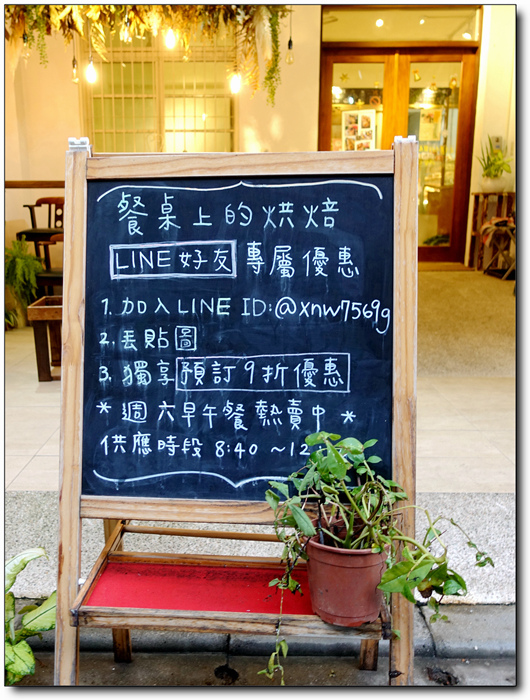 餐桌上的烘焙
LINE 好友 專屬優惠
1. 加入 LINE ID:@xnw7569g
2. 丟貼圖
3. 獨享預訂9折優惠
* 週六早午餐熱賣中 *
供應時段 8:40 ~12: